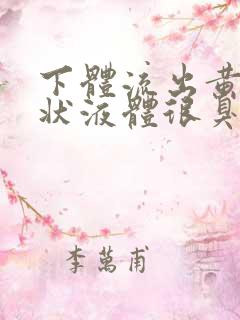 下體流出黃
狀液體很臭
李萬甫